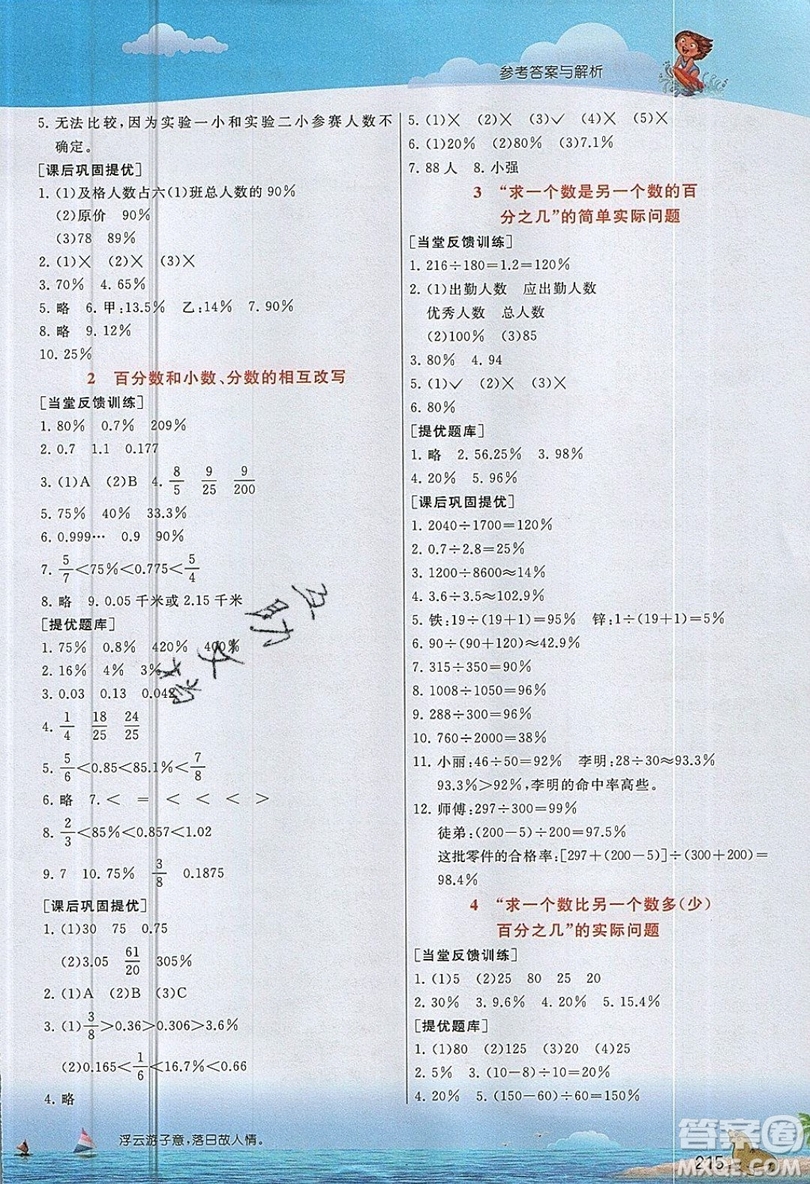 参考答案与解析
5. 无法比较,因为实验一小和实验二小参赛人数不
确定。
[课后巩固提优]
1. (1)及格人数占六(1)班总人数的 90%
(2)原价 90%
(3)78 89%
2. (1)× (2)× (3)×
3. 70% 4. 65%
5. 略 6. 甲:13.5% 乙:14% 7. 90%
8. 略 9. 12%
10. 25%
2 百分数和小数、分数的相互改写
[当堂反馈训练]
1. 80% 0.7% 209%
2. 0.7 1.1 0.177
3. (1)A (2)B 4. 8/5 9/25 9/200
5. 75% 40% 33.3%
6. 0.999… 0.9 90%
7. 5/7<75%<0.775<5/4
8. 略 9. 0.05 千米或 2.15 千米
[提优题库]
1. 75% 0.8% 420% 400%
2. 16% 4% 3%
3. 0.03 0.13 0.042
4. 1/4 18/25 24/25
5. 5/6<0.85<85.1%<7/8
6. 略 7. < = < < < >
8. 2/3<85%<0.857<1.02
9. 7 10. 75% 3/8 0.1875
[课后巩固提优]
1. (1)30 75 0.75
(2)3.05 61/20 305
2. (1)A (2)B (3)C
3. (1)3/8>0.36>0.306>3.6%
(2)0.165<1/6<16.7%<0.66
4. 略
5. (1)× (2)× (3)✓ (4)× (5)×
6. (1)20% (2)80% (3)7.1%
7. 88 人 8. 小强
3 “求一个数是另一个数的百
分之几”的简单实际问题
[当堂反馈训练]
1. 216÷180=1.2=120%
2. (1)出勤人数 应出勤人数
优秀人数 总人数
(2)100% (3)85
3. 80% 4. 94
5. (1)✓ (2)✓ (3)×
6. 80%
[提优题库]
1. 略 2. 56.25% 3. 62.5%
4. 20% 5. 96%
[课后巩固提优]
1. 2040÷1700=120%
2. 0.7÷2.8=25%
3. 1200÷8600≈14%
4. 3.6÷3.5≈102.9%
5. 铁:19÷(19+1)=95% 锌:1÷(19+1)=5%
6. 90÷(90+120)≈42.9%
7. 315÷350=90%
8. 1008÷1050=96%
9. 288÷300=96%
10. 760÷2000=38%
11. 小丽:46÷50=92% 李明:28÷30≈93.3%
93.3%>92%,李明的命中率高些。
12. 师傅:297÷300=99%
徒弟:(200-5)÷200=97.5%
这批零件的合格率:[297+(200-5)]÷(300+200)=
98.4%
4 “求一个数比另一个数多(少)
百分之几”的实际问题
[当堂反馈训练]
1. (1)5 (2)25 80 25 20
2. 30% 3. 9.6% 4. 20% 5. 15.4%
[提优题库]
1. (1)80 (2)125 (3)20 (4)25
2. 5% 3. (10-8)÷10=20%
4. 20% 5. (150-60)÷60=150%
浮云游子意,落日故人情。
215
答案圈
MXQE.COM